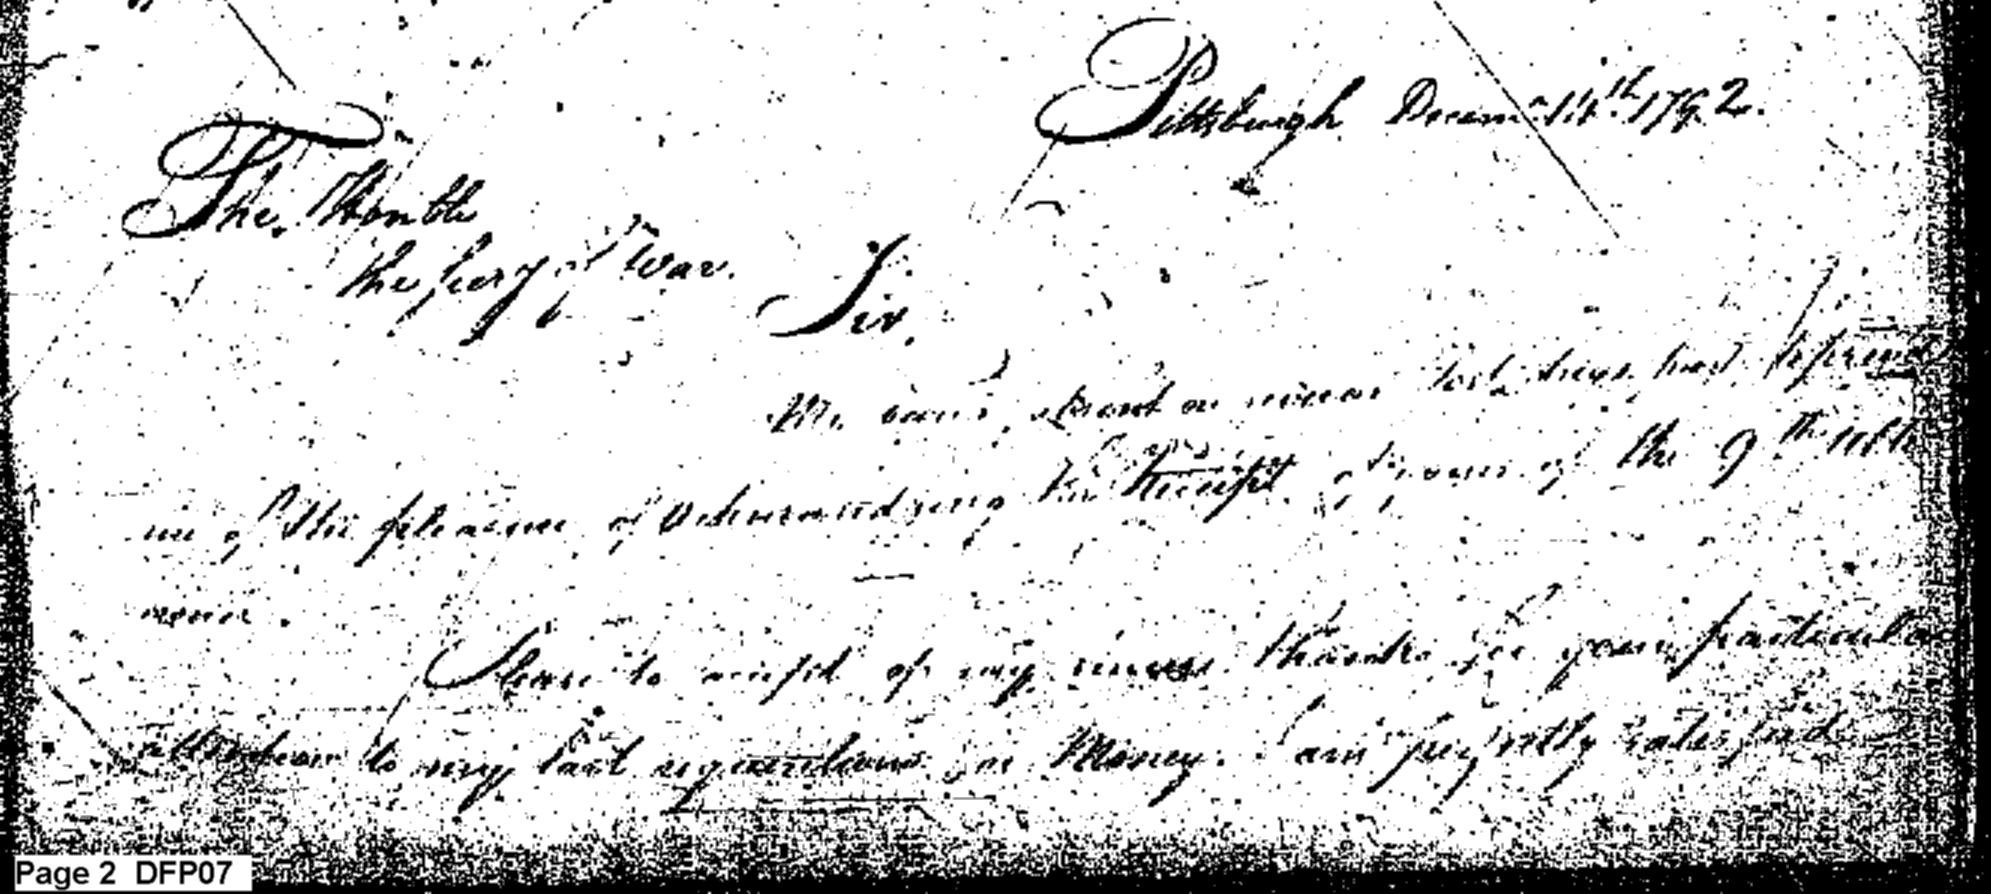 Pittsburgh Decem. 14th. 1792.
The Honble
the Secry of War.
Sir,
last has
me of the pleasure of acknowledging the Receipt of yours of the 9th Ulto
Please to accept of my sincere thanks for your particular
attention to my last requisitions for Money. I am perfectly satisfied
Page 2 DFP07